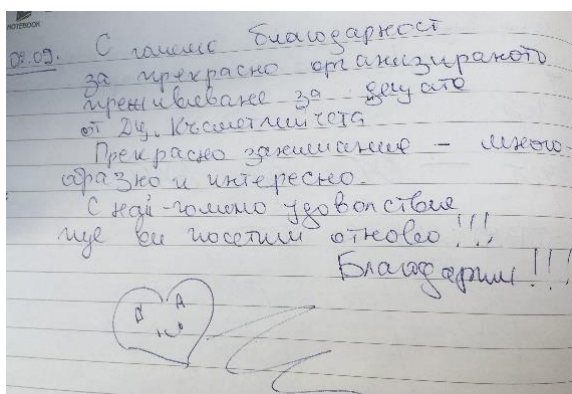 NOTEBOOK
09.09. С голяма благодарност
за прекрасно организираното
преживяване за децата
от ДЦ. Късметлийчета
Прекрасно занимание – много
образно и интересно.
С най-голямо удоволствие
ще ви посетим отново!!!
Благодарим!!!